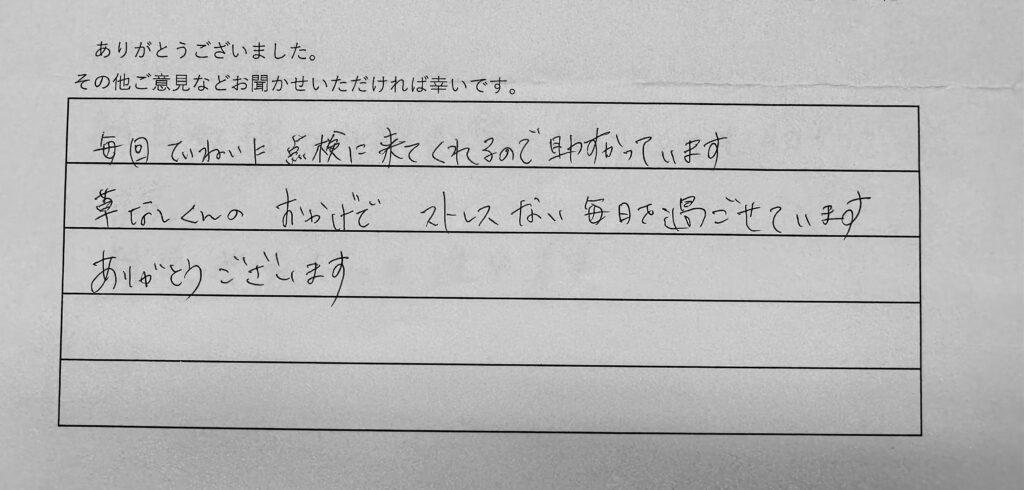 ありがとうございました。
その他ご意見などお聞かせいただければ幸いです。
毎回 ていねいに 点検に来てくれるので助すかっています
草なしくんの おかげで ストレスない 毎日を過ごせています
ありがとうございます